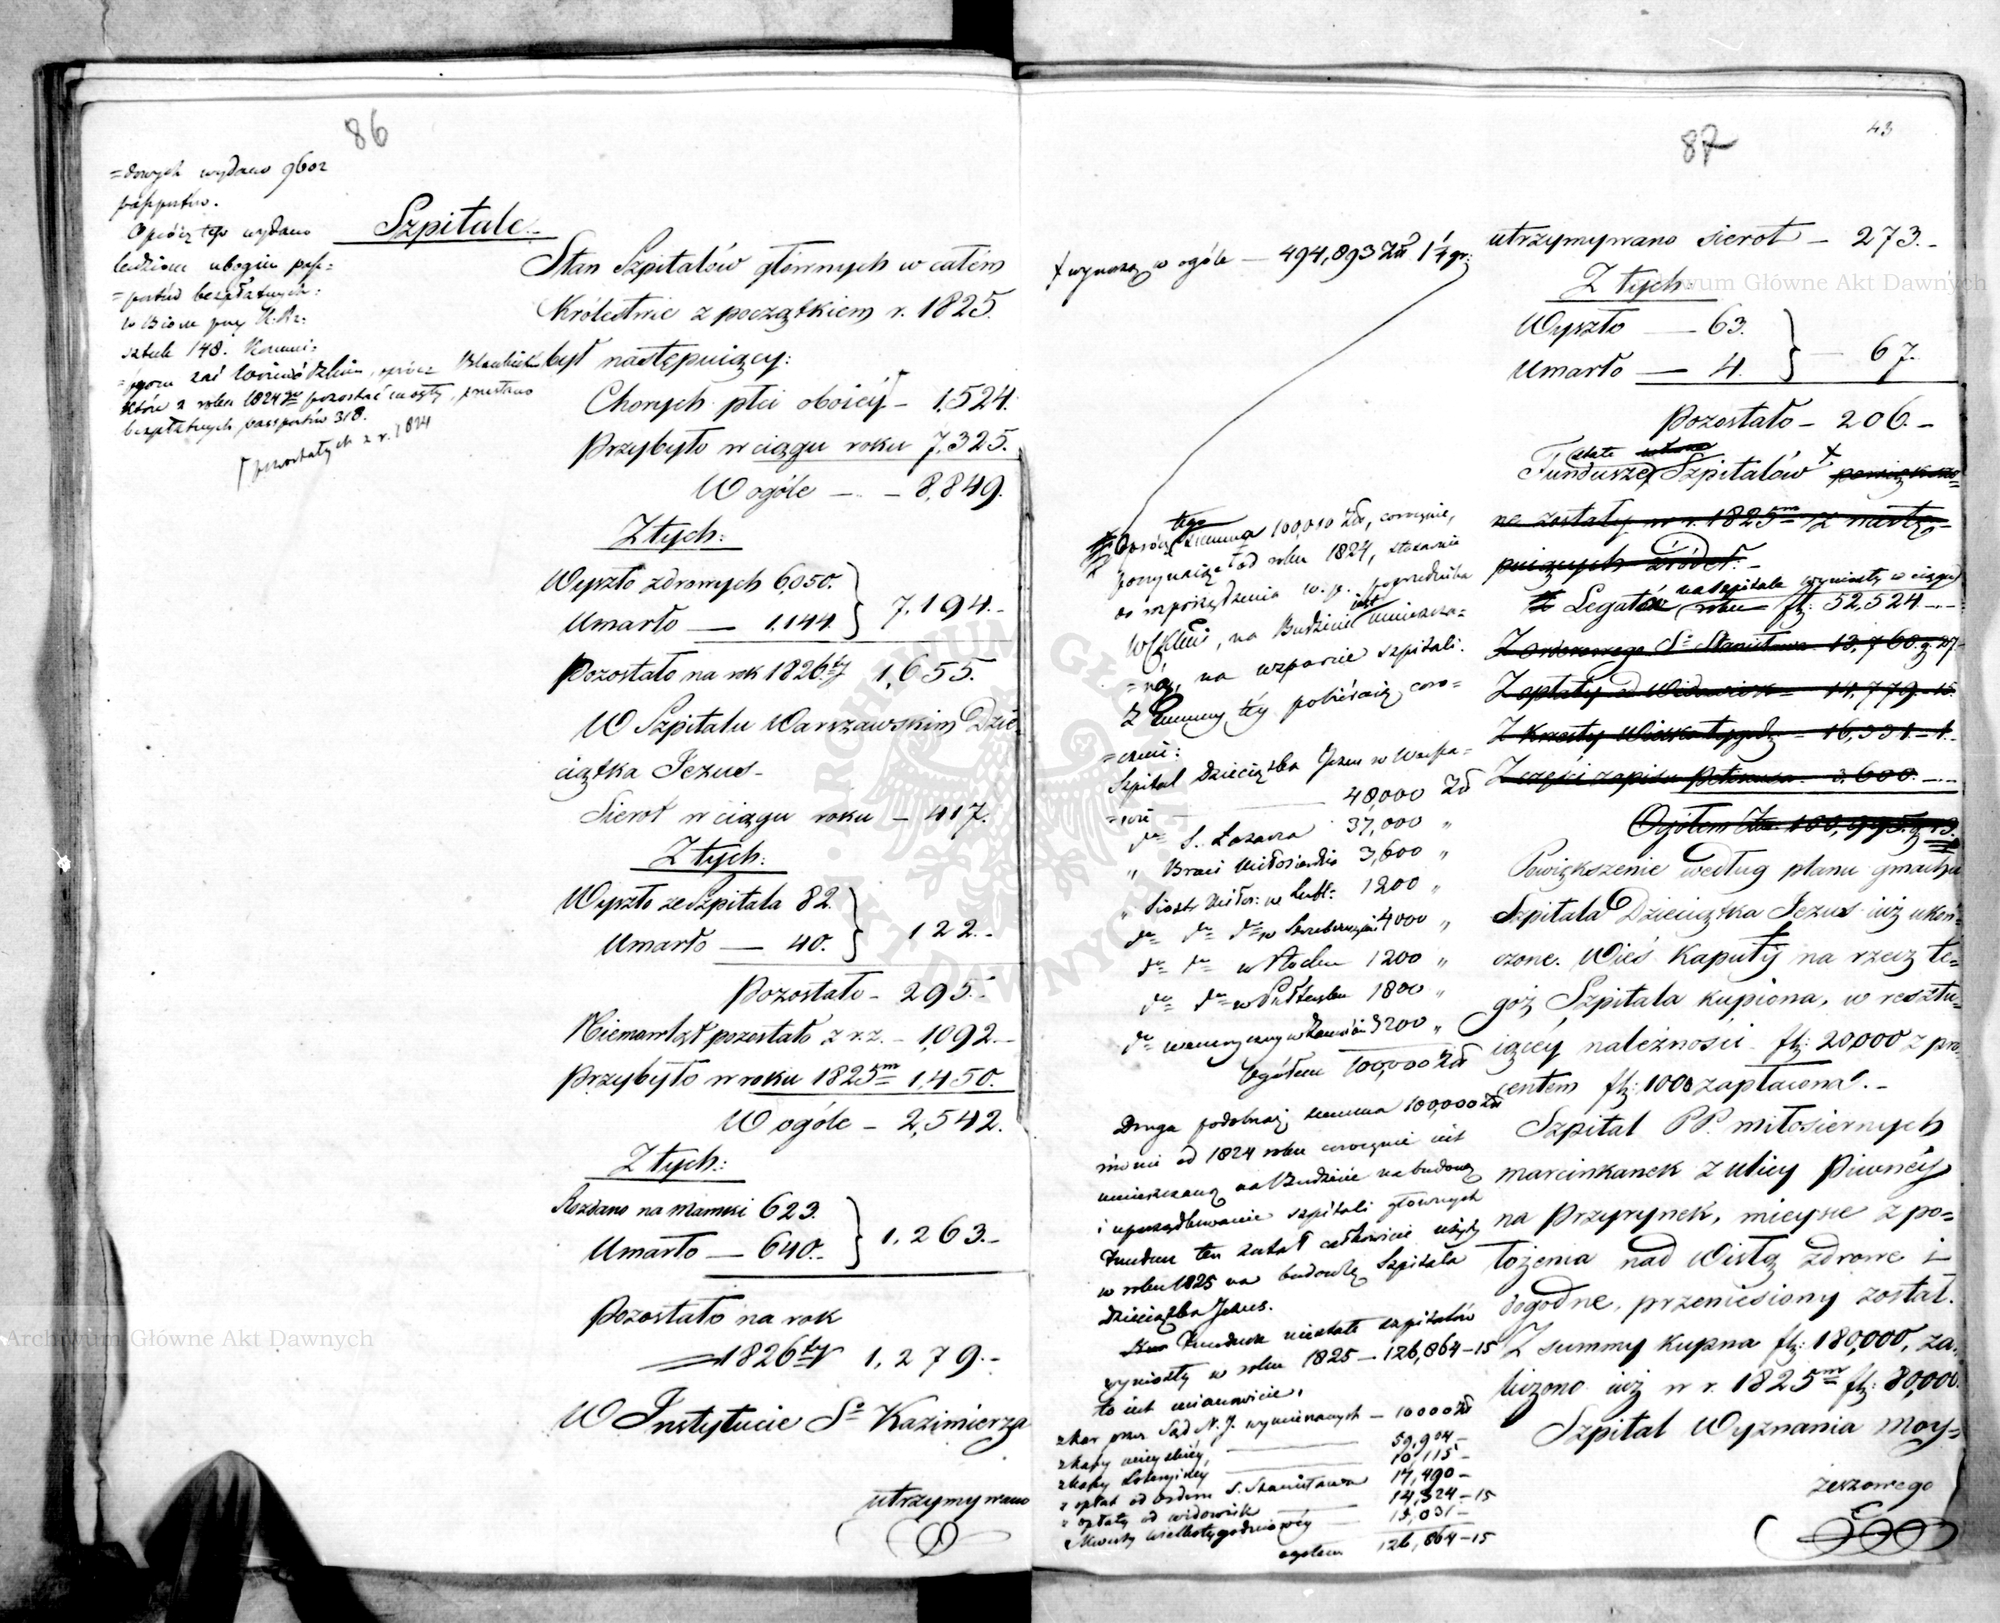 86
=dowych wydano 9602
passportów.
Oprócz tego wydano
ludziom ubogim pass=
=portów bezpłatnych:
w Biorze przy K. Rz:
sztuk 148.
które z roku 1824go pozostać mogły, przesłano
bezpłatnych passportów 318.
pozostałych z r. 1824
Szpitale.
Stan Szpitalów głównych w całém
Królestwie z początkiem r. 1825.
był następuiący:
Chorych płci oboiéy — 1,524.
Przybyło w ciągu roku 7,325.
W ogóle — — 8,849.
Z tych:
Wyszło zdrowych 6,050.
Umarło — 1,144. } 7,194.—
Pozostało na rok 1826ty 1,655.
W Szpitalu Warszawskim Dzie-
ciątka Jezus—
Sierot w ciągu roku — 417.
Z tych:
Wyszło ze Szpitala 82.
Umarło — 40. } 122.—
Pozostało — 295.—
Niemowląt pozostało z r. z. — 1,092.—
Przybyło w roku 1825m 1,450.
W ogóle — 2,542.
Z tych:
Rozdano na mamki 623.
Umarło — 640.— } 1,263.—
Pozostało na rok
1826ty 1,279.—
W Instytucie So Kazimierza
utrzymywano
87
43
+ wynoszą w ogóle — 494,893 Zł 1 1/4 gr:
Oprócz tego summa 100,000 Złp, corocznie,
począwszy od roku 1824, stosownie
do rozporządzenia
na Budżecie iest umieszcza=
=ną, na wsparcie szpitali.
Z summy téy pobieraią coro=
=cznie:
Szpital Dzieciątka Jezus w Warsza=
=wie — 48,000 Zł
do S. Łazarza 37,000 "
" Braci Miłosierdzia 3,600 "
" Siostr Miłos: w Lubl: 1200 "
do do do w Szczebrzeszynie 4000 "
do do w Płocku 1200 "
do do w Pułtusku 1800 "
do weneryczny w Kamień 3200 "
Ogółem 100,000 Zł
Druga podobnaż summa 100,000 Zł
równie od 1824 roku corocznie iest
umieszczaną na Budżecie na budowę
i uporządkowanie szpitali głównych
Fundusz ten został całkowicie użyty
w roku 1825 na budowlę Szpitala
Dzieciątka Jezus.
Fundusze niestałe szpitalów
wyniosły w roku 1825 — 126,864—15
to iest mianowicie,
z kar przez Sąd N. J. wymierzonych — 10000 Zł
z kassy mieyskiéy, — 59,904—
z kassy Loteryinéy — 10,115—
z opłat od Orderu S. Stanisława — 17,490—
z opłaty od widowisk — 14,324—15
z Kwesty wielkotygodniowéy — 15,031—
ogółem 126,864—15
utrzymywano sierot — 273.—
Z tych:
Wyszło — 63.
Umarło — 4. } — 67.
Pozostało — 206.—
Fundusze stałe własne Szpitalów + powiększo=
ne zostały w r. 1825m z nastę=
puiących źródeł.—
Z Legatów na szpitale wyniosły w ciągu
roku fl: 52,524.—
Z orderowego So Stanisława — 13,760. g 27.
Z opłaty od Widowisk — 14,779.—15.
Z Kwesty Wielkotygod: — 16,331.—1.
Z części zapisu Petersona — 3,600.—
Ogółem Złp. 100,995. g 13.
Powiększenie według planu gmachu
Szpitala Dzieciątka Jezus iuż ukoń-
czone. Wieś Kaputy na rzecz te=
goż Szpitala kupiona, w resztu=
iącéy należności fl: 20,000 z pro
centem fl: 1000 zapłacona.—
Szpital PP. miłosiernych
marcinkanek z ulicy Piwnéy
na Przyrynek, mieysce z po=
łożenia nad Wisłą zdrowe i
dogodne, przeniesiony został.
Z summy kupna fl: 180,000, za=
liczono iuż w r. 1825m fl: 80,000.
Szpital Wyznania Moy=
żeszowego
Archiwum Główne Akt Dawnych
Archiwum Główne Akt Dawnych
ARCHIWUM GŁÓWNE AKT DAWNYCH